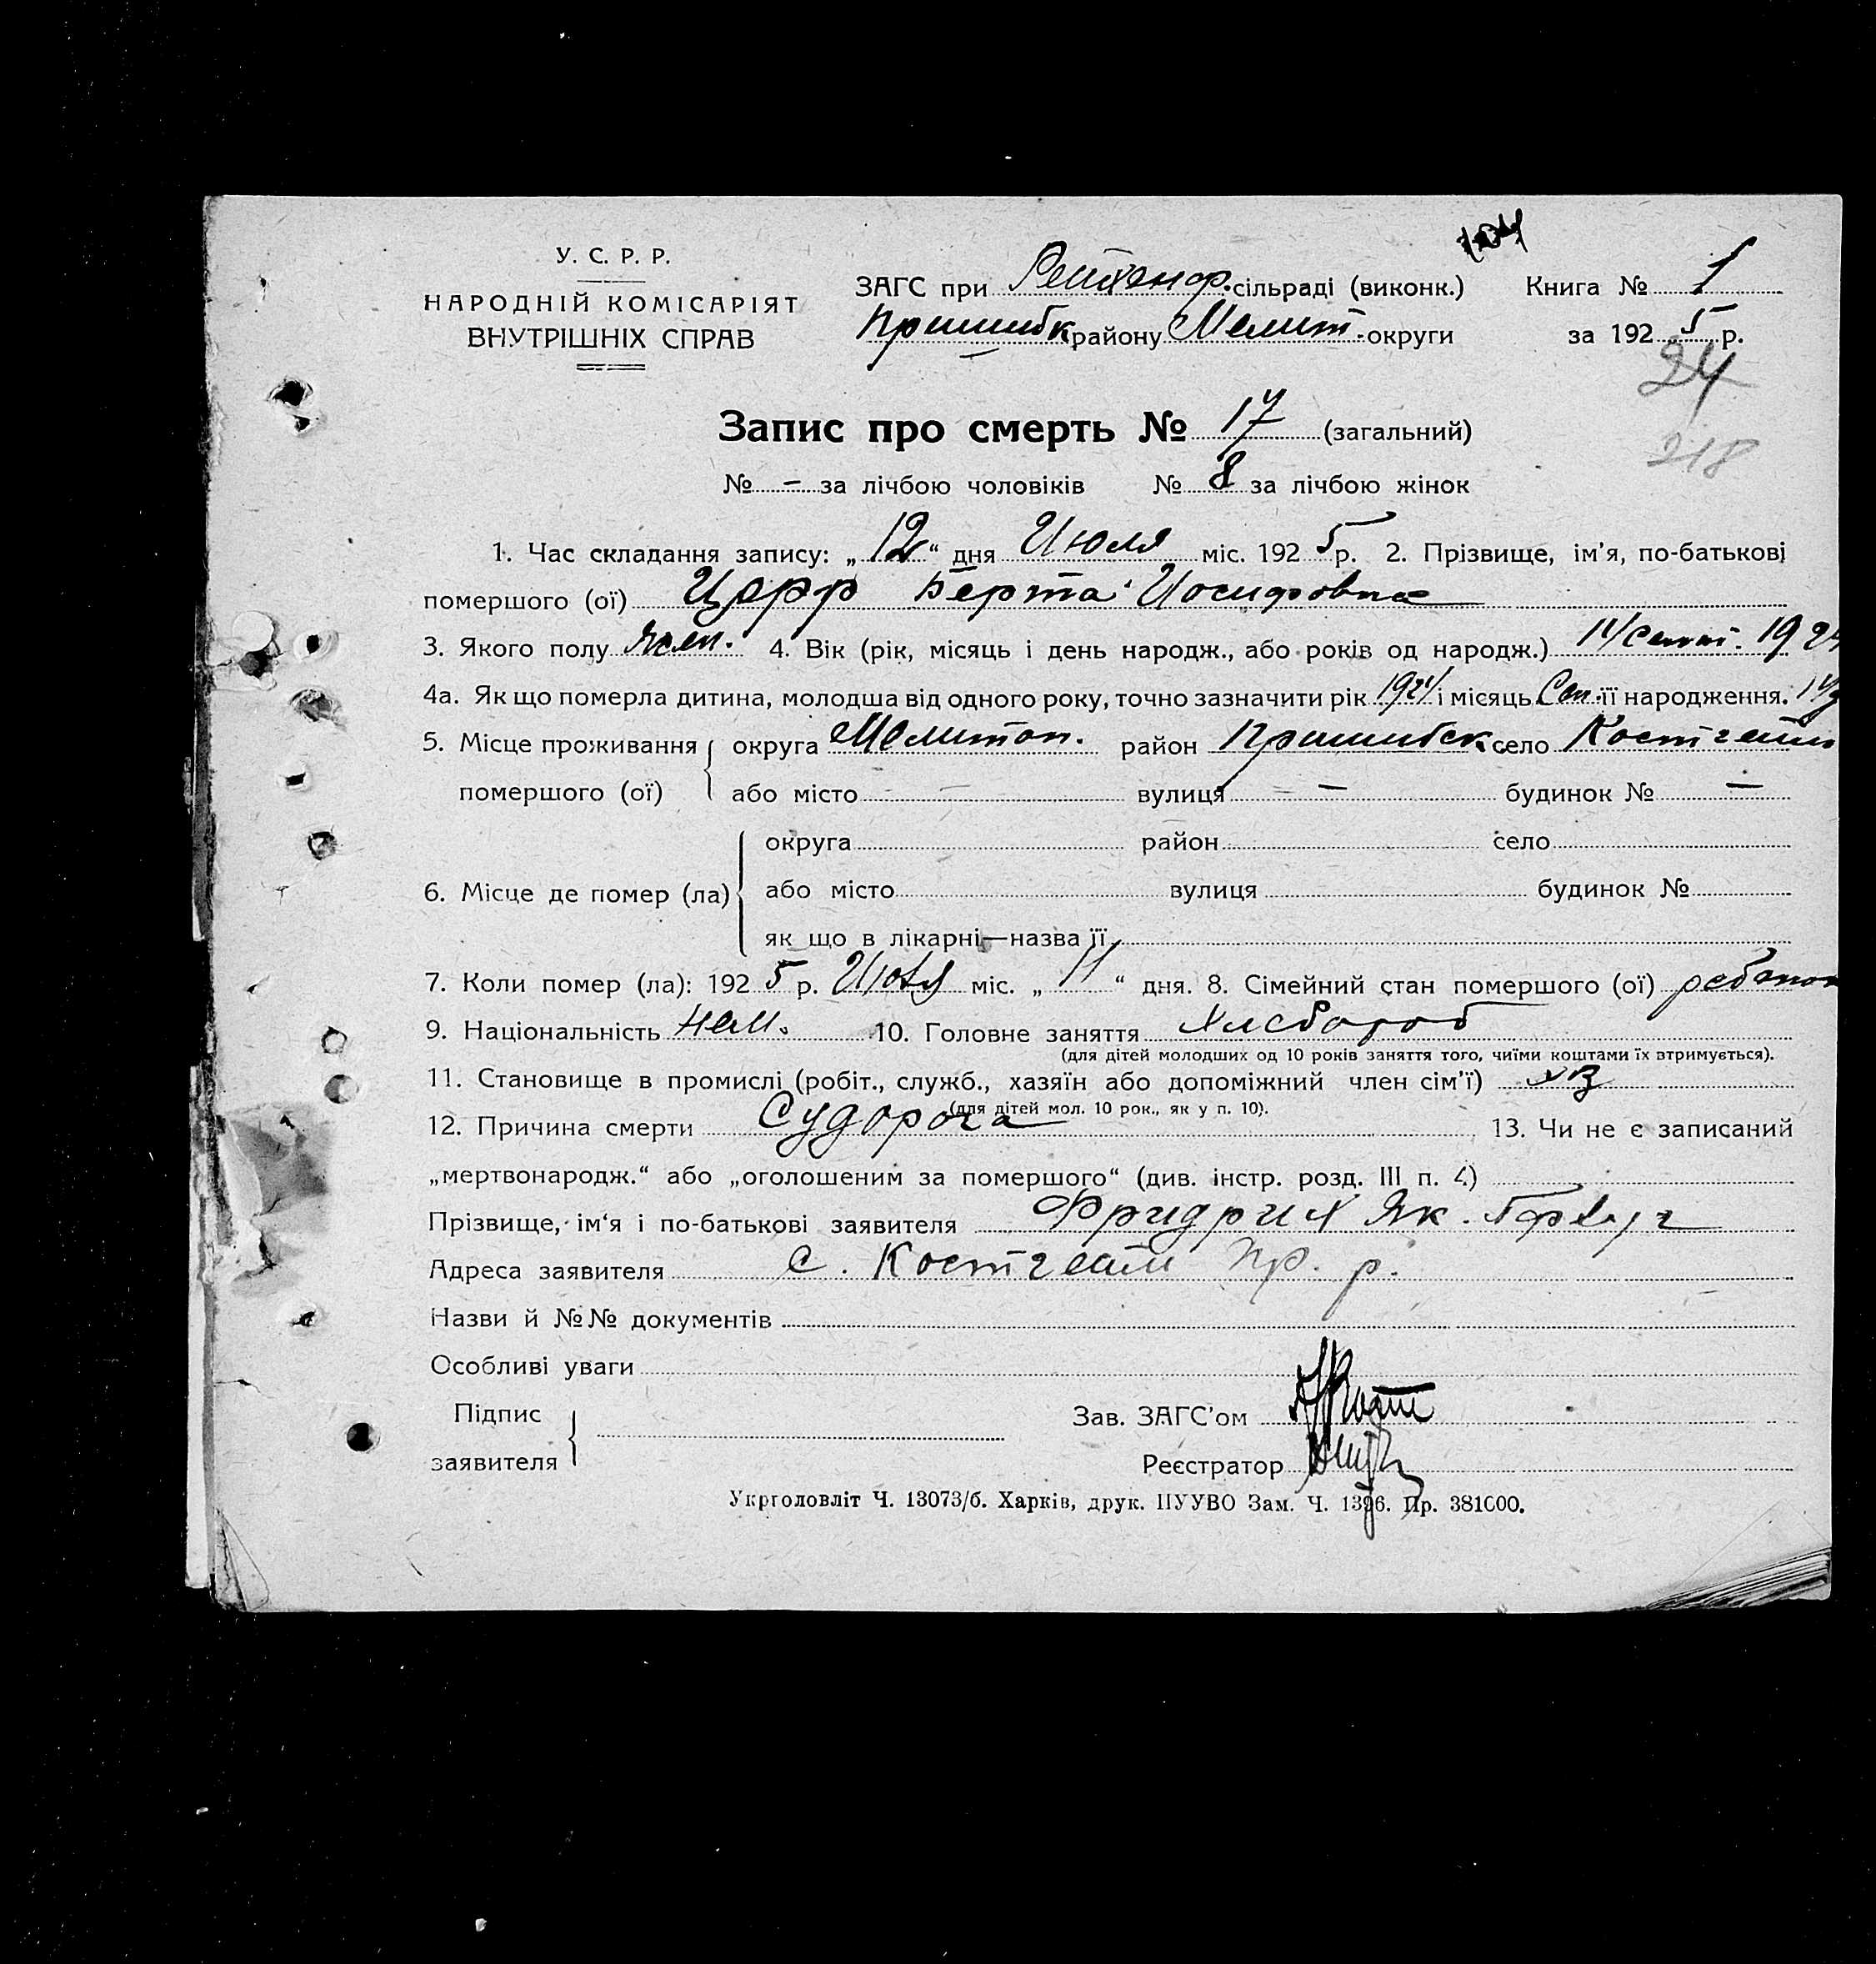 104
У. С. Р. Р.
НАРОДНІЙ КОМІСАРІЯТ
ВНУТРІШНІХ СПРАВ
ЗАГС при Рейхенф. сільраді (виконк.) Книга № 1
Пришибк району Мелит. округи за 1925 р.
24
218
Запис про смерть № 17 (загальний)
№ – за лічбою чоловіків № 8 за лічбою жінок
1. Час складання запису: „12“ дня Июля міс. 1925 р. 2. Прізвище, ім'я, по-батькові
помершого (ої) Царр Берта Иосифовна
3. Якого полу жен. 4. Вік (рік, місяць і день народж., або років од народж.) 14/сент. 1924
4а. Як що померла дитина, молодша від одного року, точно зазначити рік 1924 і місяць Сен. її народження. 14/9
5. Місце проживання округа Мелитоп. район Пришибск. село Костгейм
помершого (ої) або місто – вулиця – будинок № –
округа район село
6. Місце де помер (ла) або місто вулиця будинок №
як що в лікарні—назва її
7. Коли помер (ла): 1925 р. Июля міс. „11“ дня. 8. Сімейний стан помершого (ої) ребенок
9. Національність нем. 10. Головне заняття Хлебороб
(для дітей молодших од 10 років заняття того, чиїми коштами їх втримується).
11. Становище в промислі (робіт., служб., хазяїн або допоміжний член сім'ї) хз
(для дітей мол. 10 рок., як у п. 10).
12. Причина смерти Судорога 13. Чи не є записаний
„мертвонародж.“ або „оголошеним за помершого“ (див. інстр. розд. III п. 4)
Прізвище, ім'я і по-батькові заявителя Фридрих Як.
Адреса заявителя с. Костгейм Пр. р.
Назви й №№ документів
Особливі уваги
Підпис
заявителя
Зав. ЗАГС'ом
Реєстратор
Укрголовліт Ч. 13073/б. Харків, друк. ПУУВО Зам. Ч. 1396. Пр. 381000.